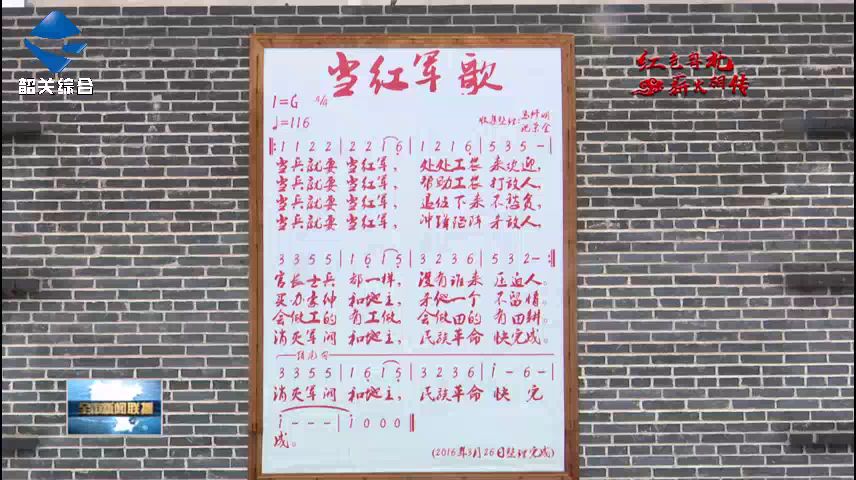 韶关综合
红色粤北
薪火相传
当红军歌
1=G 4/4
♩=116
收集整理:
‖: 1 1 2 2 | 2 2 1 6 | 1 2 1 6 | 5 3 5 - |
当兵就要 当红军, 处处工农 来欢迎,
当兵就要 当红军, 帮助工农 打敌人,
当兵就要 当红军, 退伍下来 不愁食,
当兵就要 当红军, 冲锋陷阵 杀敌人,
3 3 5 5 | 1 6 1 5 | 3 2 3 6 | 5 3 2 - :‖
官长士兵 都一样, 没有谁来 压迫人。
买办豪绅 和地主, 杀他一个 不留情。
会做工的 有工做, 会做田的 有田耕。
消灭军阀 和地主, 民族革命 快完成。
结尾句
3 3 5 5 | 1 6 1 5 | 3 2 3 6 | i - 6 - |
消灭军阀 和地主, 民族革命 快 完
i - - - | i 0 0 0 ‖
成。
(2016年3月26日整理完成)
全市新闻联播